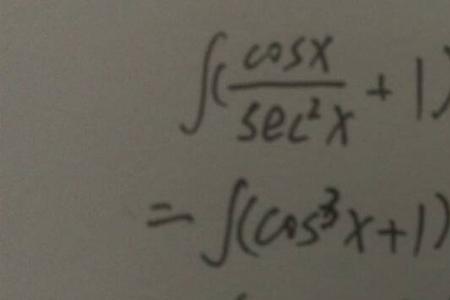 ∫(cosx/sec²x + 1)
= ∫(cos³x+1)